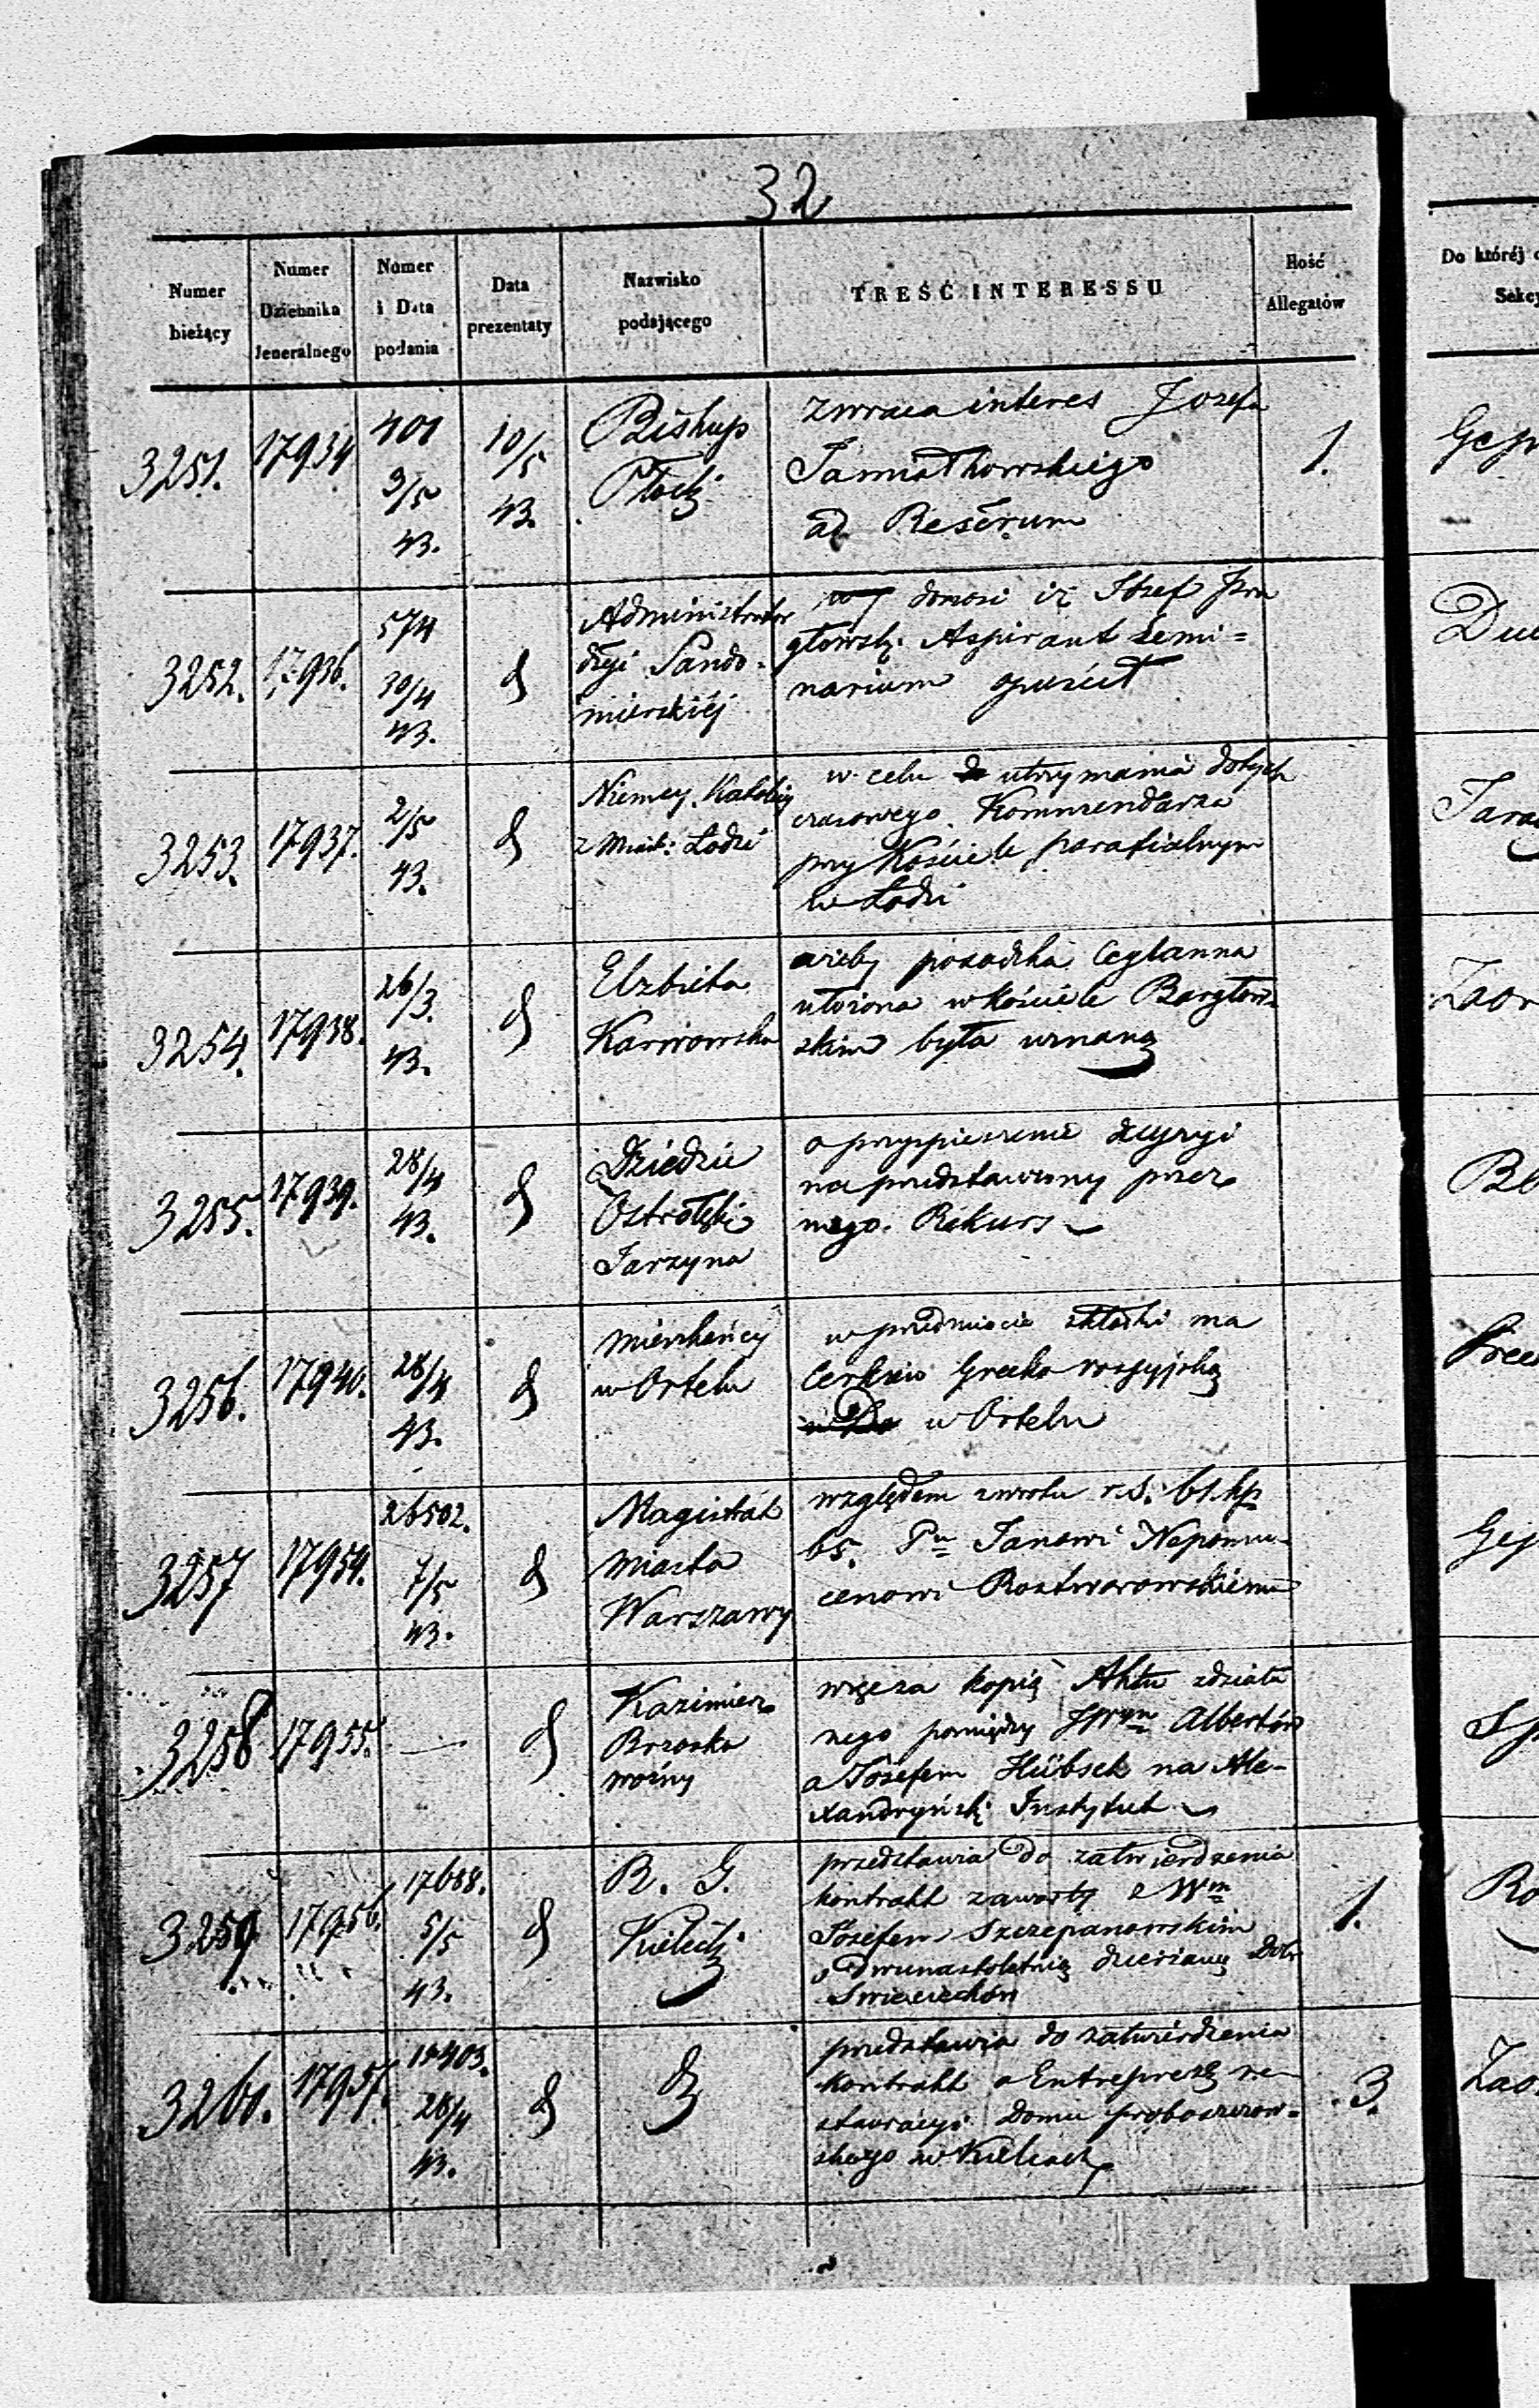 32
Numer bieżący
Numer Dziennika Jeneralnego
Numer i Data podania
Data prezentaty
Nazwisko podającego
TREŚĆ INTERESSU
Ilość Allegatów
Do któréj
Sekcy
3251. 17934 401 9/5 43. 10/5 43. Biskup Płocki
zwraca interes Jozefa
Jamiołkowskiego
ad Rescrum
1.
3252. 17936. 574 30/4 43. d
Administrator
dyeji Sando-
mierskiéj
donosi iż Józef
głowski Aspirant Semi=
narium opuścił
3253. 17937. 2/5 43. d
Niemcy Katolicy
z Miast: Łodzi
w celu utrzymania dotych
czasowego Kommendarza
przy Kościele parafialnym
w Łodzi
3254. 17938. 26/3. 43. d
Elzbieta
Karwowska
ażeby posadzka Ceglanna
ułożona w Kościele Bargłow-
skim była uznaną
3255. 17939. 28/4 43. d
Dziedzic
Ostrołęki
Jarzyna
o przyspieszenie decyzyi
na przedstawiony przez
niego Rekurs
3256. 17940. 28/4 43. d
Mieszkańcy
w Ortelu
w przedmiocie składki na
Cerkiew Grecko rossyjską
w Ortelu
3257 17954. 26502. 7/5 43. d
Magistrat
Miasta
Warszawy
względem zwrotu r.s. 61. kp
65. Pu Janowi Nepomu-
cenowi Rostworowskiemu
3258 17955. — d
Kazimierz
Brzoska
woźny
wręcza kopią Aktu zdziała
nego pomiędzy Albertów
a Józefem Hübsch na Ale-
xandryński Instytut
3259 17956. 17688. 5/5 43. d
R. G.
Kielecki
przedstawia do zatwierdzenia
kontrakt zawarty z Wm
Józefem Szczepanowskim
o dwunastoletnią dzierżawę Dóbr
Swieciechów
1.
3260. 17957. 28/4 43. d
d
przedstawia do zatwierdzenia
kontrakt o Entreprezę re-
stauracyi Domu probosczow=
skiego w Kielcach
3.